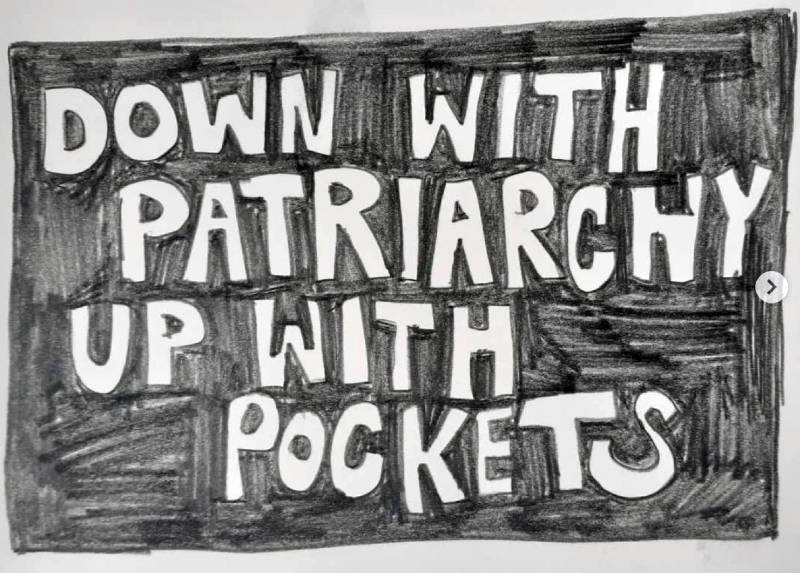 DOWN WITH
PATRIARCHY
UP WITH
POCKETS